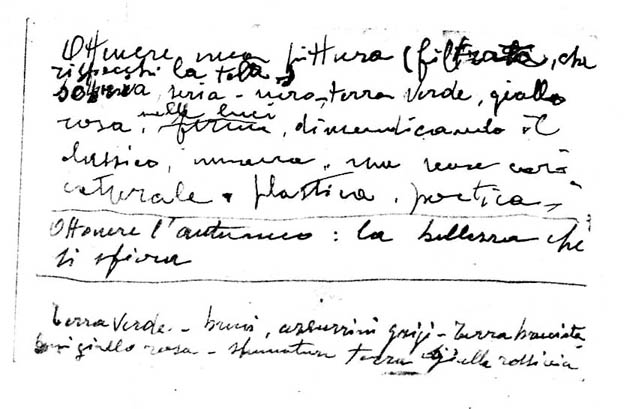 Ottenere una pittura (filtrata, che
rispecchi la tela,
sobria, seria - nero, terra verde, giallo
rosa, nelle luci, dimenticando il
classico, una cosa
naturale, plastica, poetica -
Ottenere l'autunno: la bellezza che
si sfiora
Terra verde - bruni, azzurrini grigi - Terra bruciata
giallo rosa - sfumature terra gialla